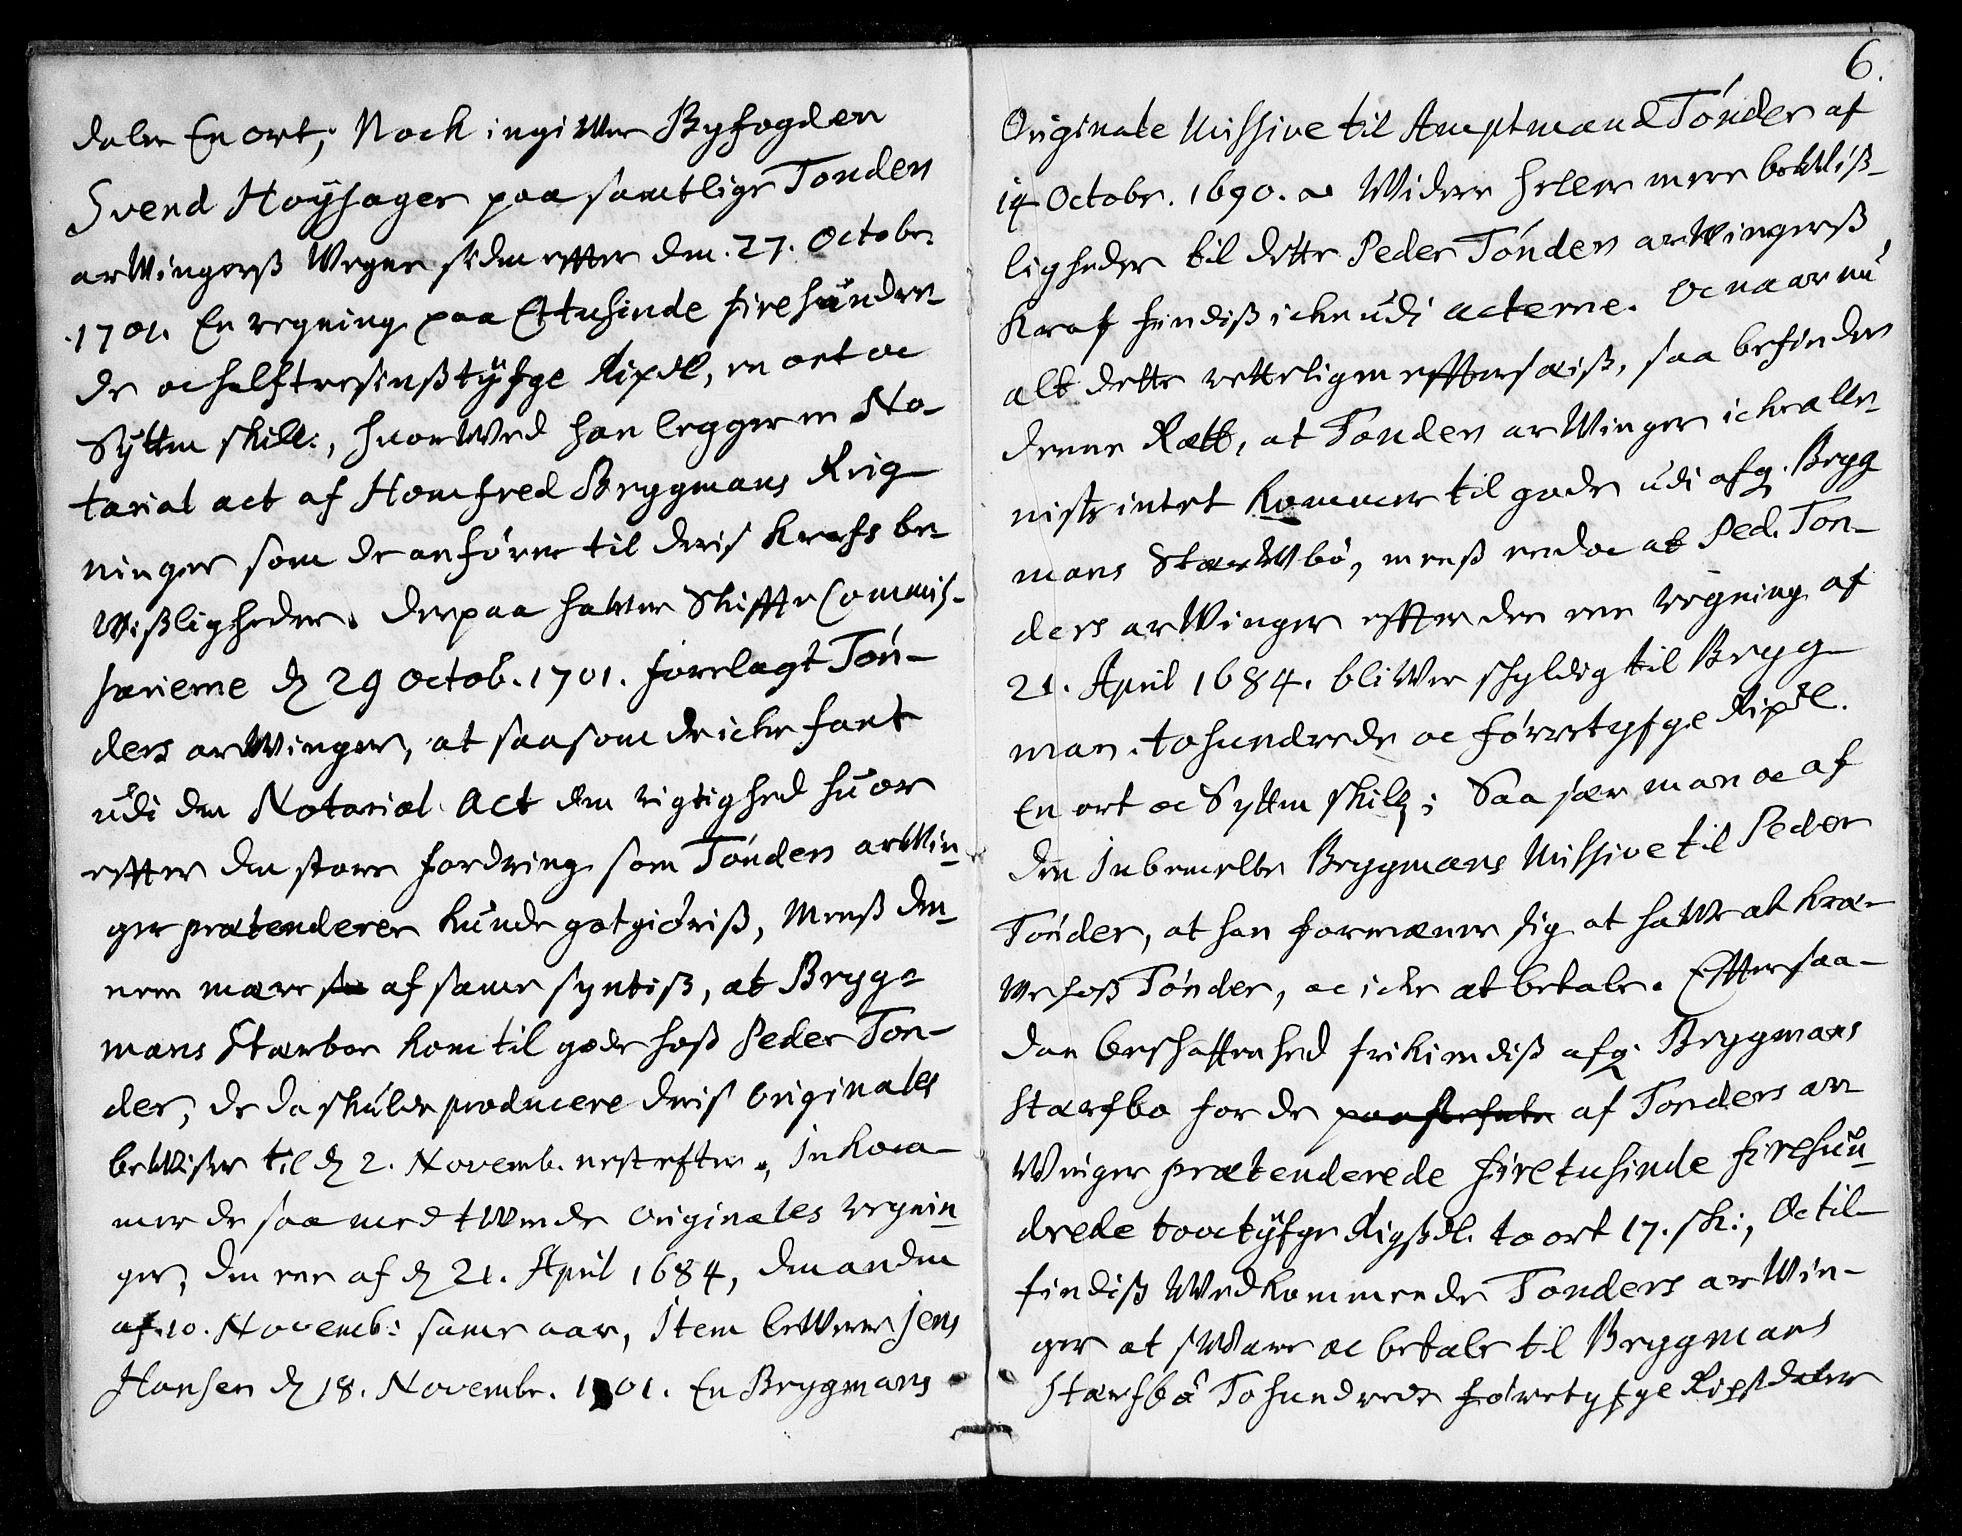 daler En ort; Noch ingiWer Byfogden
Svend Høyhager paa samtlige Tonders
arWingerß Wegne siden effter den. 27. Octobr.
1701. En regning paa Ettusinde firehundre-
de och halftresinßtyfge Rixdl, en ort oc
Sytten skill:, huorWed han legger en No-
tarial act af Homfred Brygmans Reig-
ninger som de anfører til deris Krafs be-
Wißligheder. derpaa haWer Skiffte Commis-
sarierne d 29 Octob. 1701. forelagt Tøn-
ders arWinger, at saasom de icke fant
udi den Notarial Act den rigtighed huor
effter den store fordring som Tønders arWin-
ger prætenderer kunde gotgiøriß, Menß den-
nem mere af samme syntiß, at Bryg-
mans Starboe kom til gode hoß Peder Ton-
der, de da skulde producere deris Originale
beWiser til d 2. Novemb. nest efter, Inkom-
mer de saa med tWende Originales regnin-
ger, den ene af d 21. April 1684, den anden
af 10. Novemb: samme aar, Item leWerer Jens
Hansen d 18. Novembr. 1701. En Brygmans
6.
Originale Missive til Amptmand Tønder af
14 Octobr. 1690. Widere heller mere beWiß-
ligheder til dette Peder Tønders arWingerß
Kraf findiß icke udi acterne. Oc naar nu
alt dette retteligen efftersaiß, saa befinder
denne Rætt, at Tonders arWinger icke alle-
niste intet kommer til gode udi afg. Bryg
mans StarWbo, menß endoc at Ped. Ton-
ders arWinger effter den ene regning af
21. April 1684. bliWer skyldig til Bryg-
man. tohundrede oc førretyfge Rixdl.
En ort oc Sytten skill; Saa sær man oc af
den Inbemelte Brygmans Missive til Peder
Tønder, at han formener sig at haWe at kræ-
We hoß Tønder, oc icke at betale. Effter saa-
dan beschaffenhed frikiendiß afg. Brygmans
Starfbo for de af Tonders ar
Winger prætenderede firetusinde firehun-
drede tooctyfge Rigßdl. to ort 17. sk:, Oc til-
findiß Wedkommende Tonders arWin-
ger at sWare oc betale til Brygmans
Starfbo Tohundrede førretyfge Rixdaler